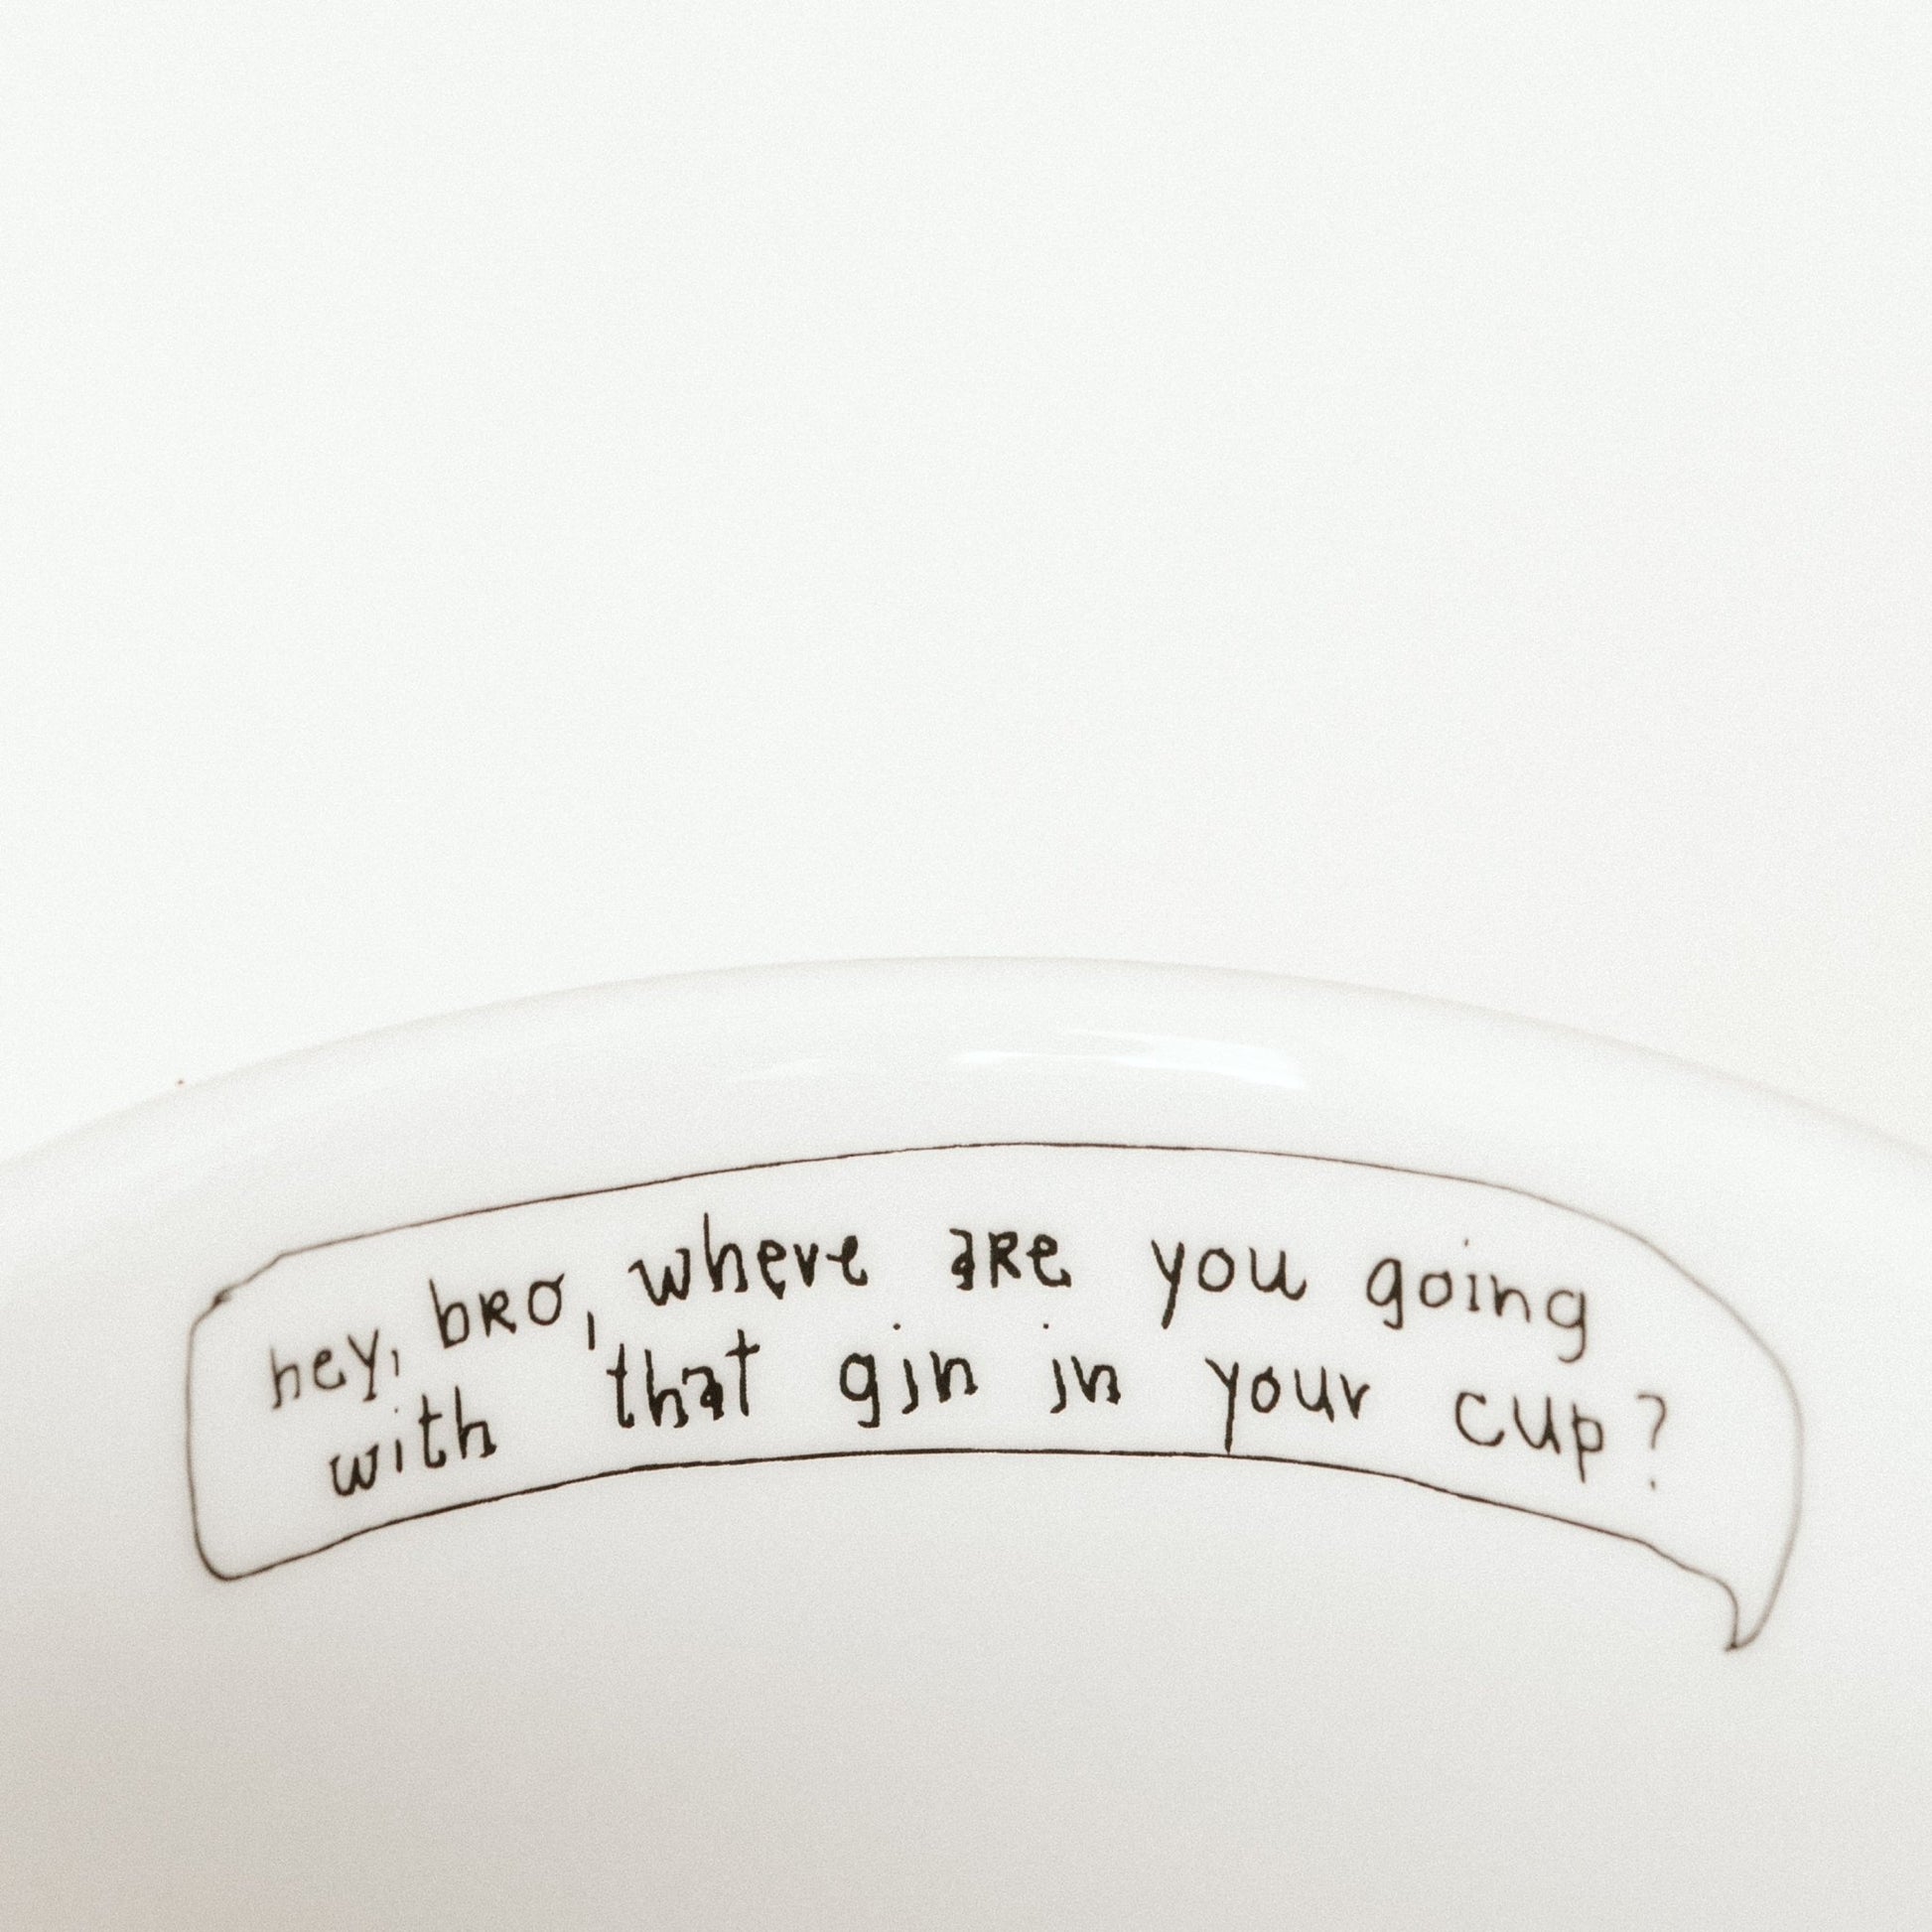 hey, bro, where are you going
with that gin in your cup?